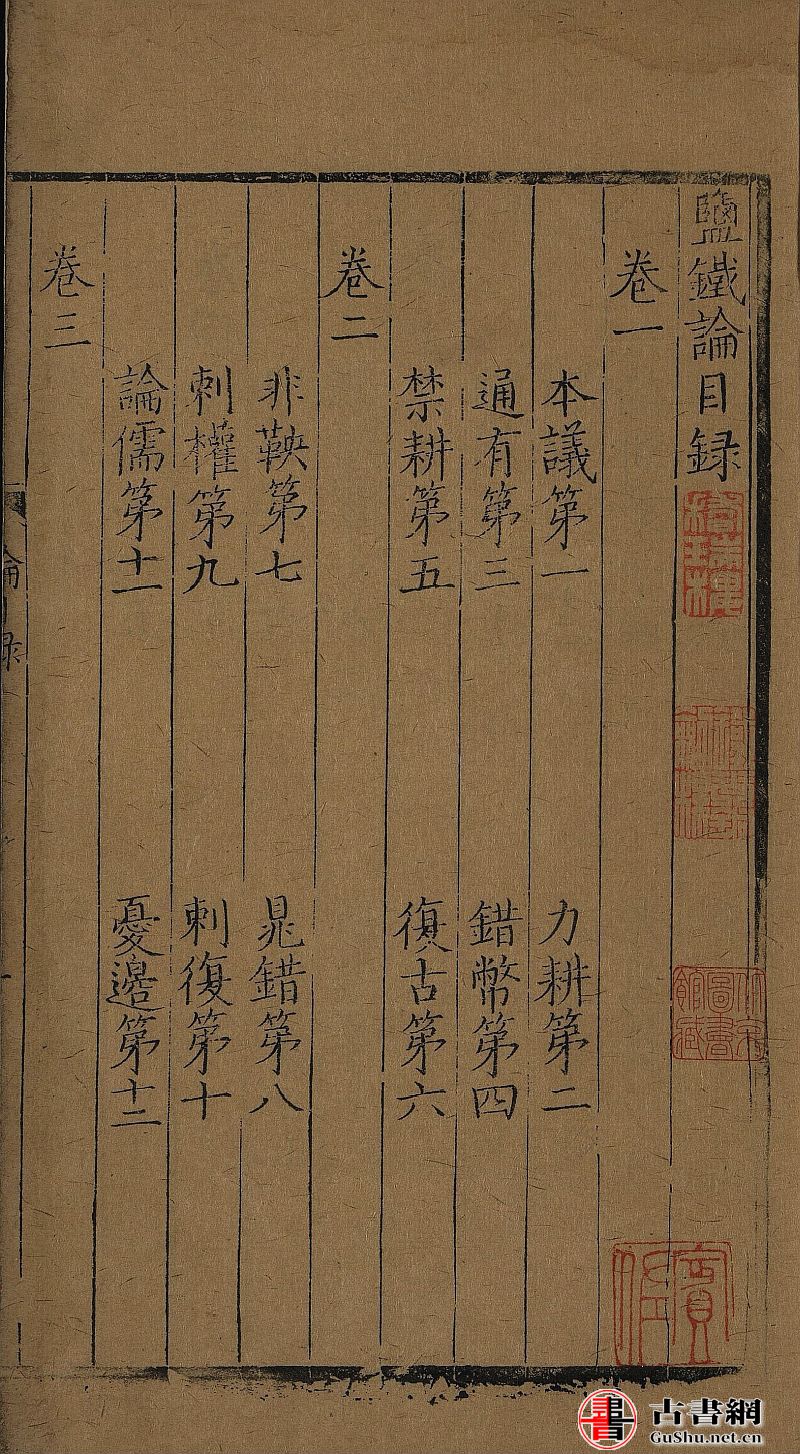 鹽鐵論目録
卷一
本議第一 力耕第二
通有第三 錯幣第四
禁耕第五 復古第六
卷二
非鞅第七 晁錯第八
刺權第九 刺復第十
論儒第十一 憂邊第十二
卷三
古書網
GuShu.net.cn